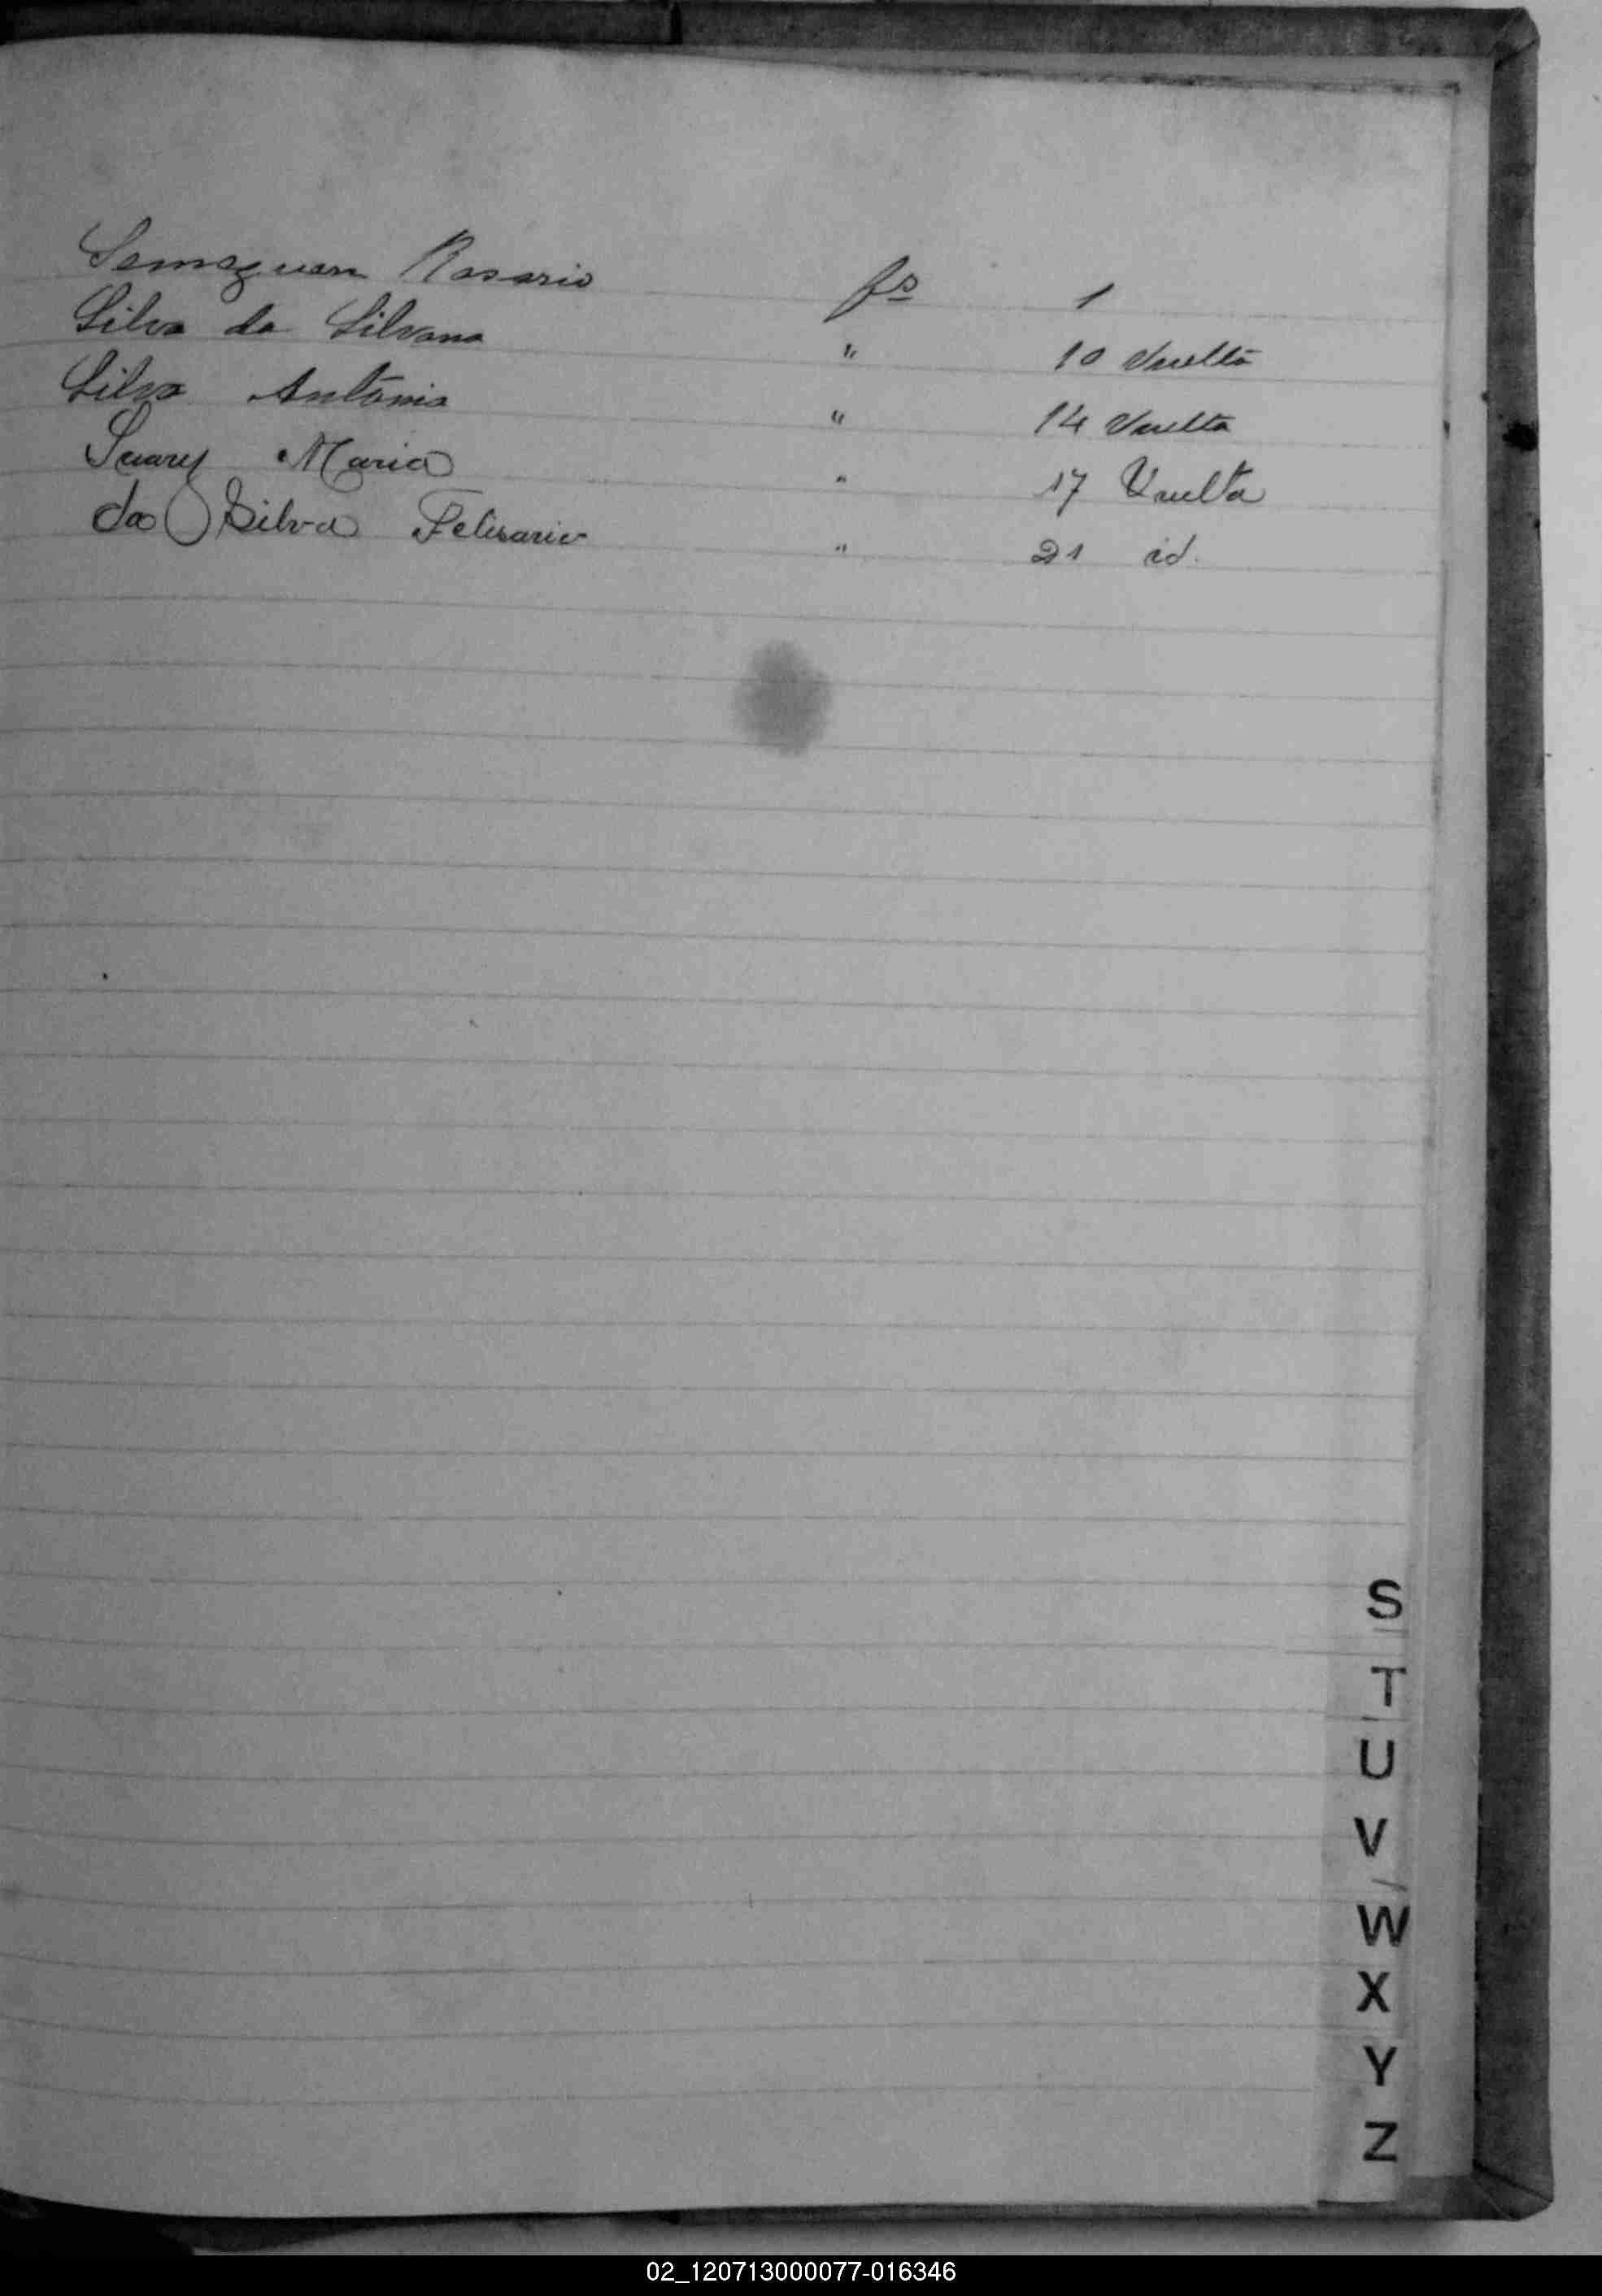 Rosario fs 1
Silva da Silvana " 10 Vuelta
Silva Antonia " 14 Vuelta
Suary Maria " 17 Vuelta
da Silva Felisaria " 21 id.
S
T
U
V
W
X
Y
Z
02_120713000077-016346